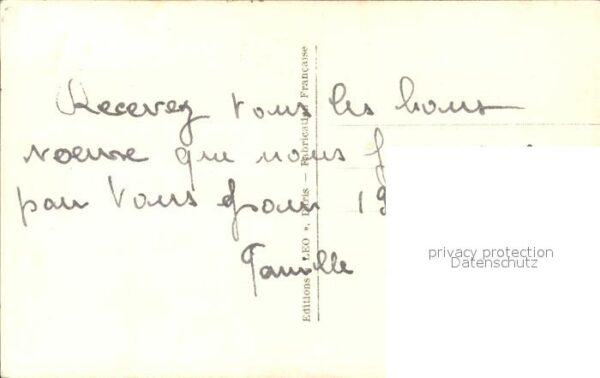 Recevez tous les bons
voeux que nous f
pour vous pour 19
Famille
Editions « LEO », Paris — Fabrication Française
privacy protection
Datenschutz